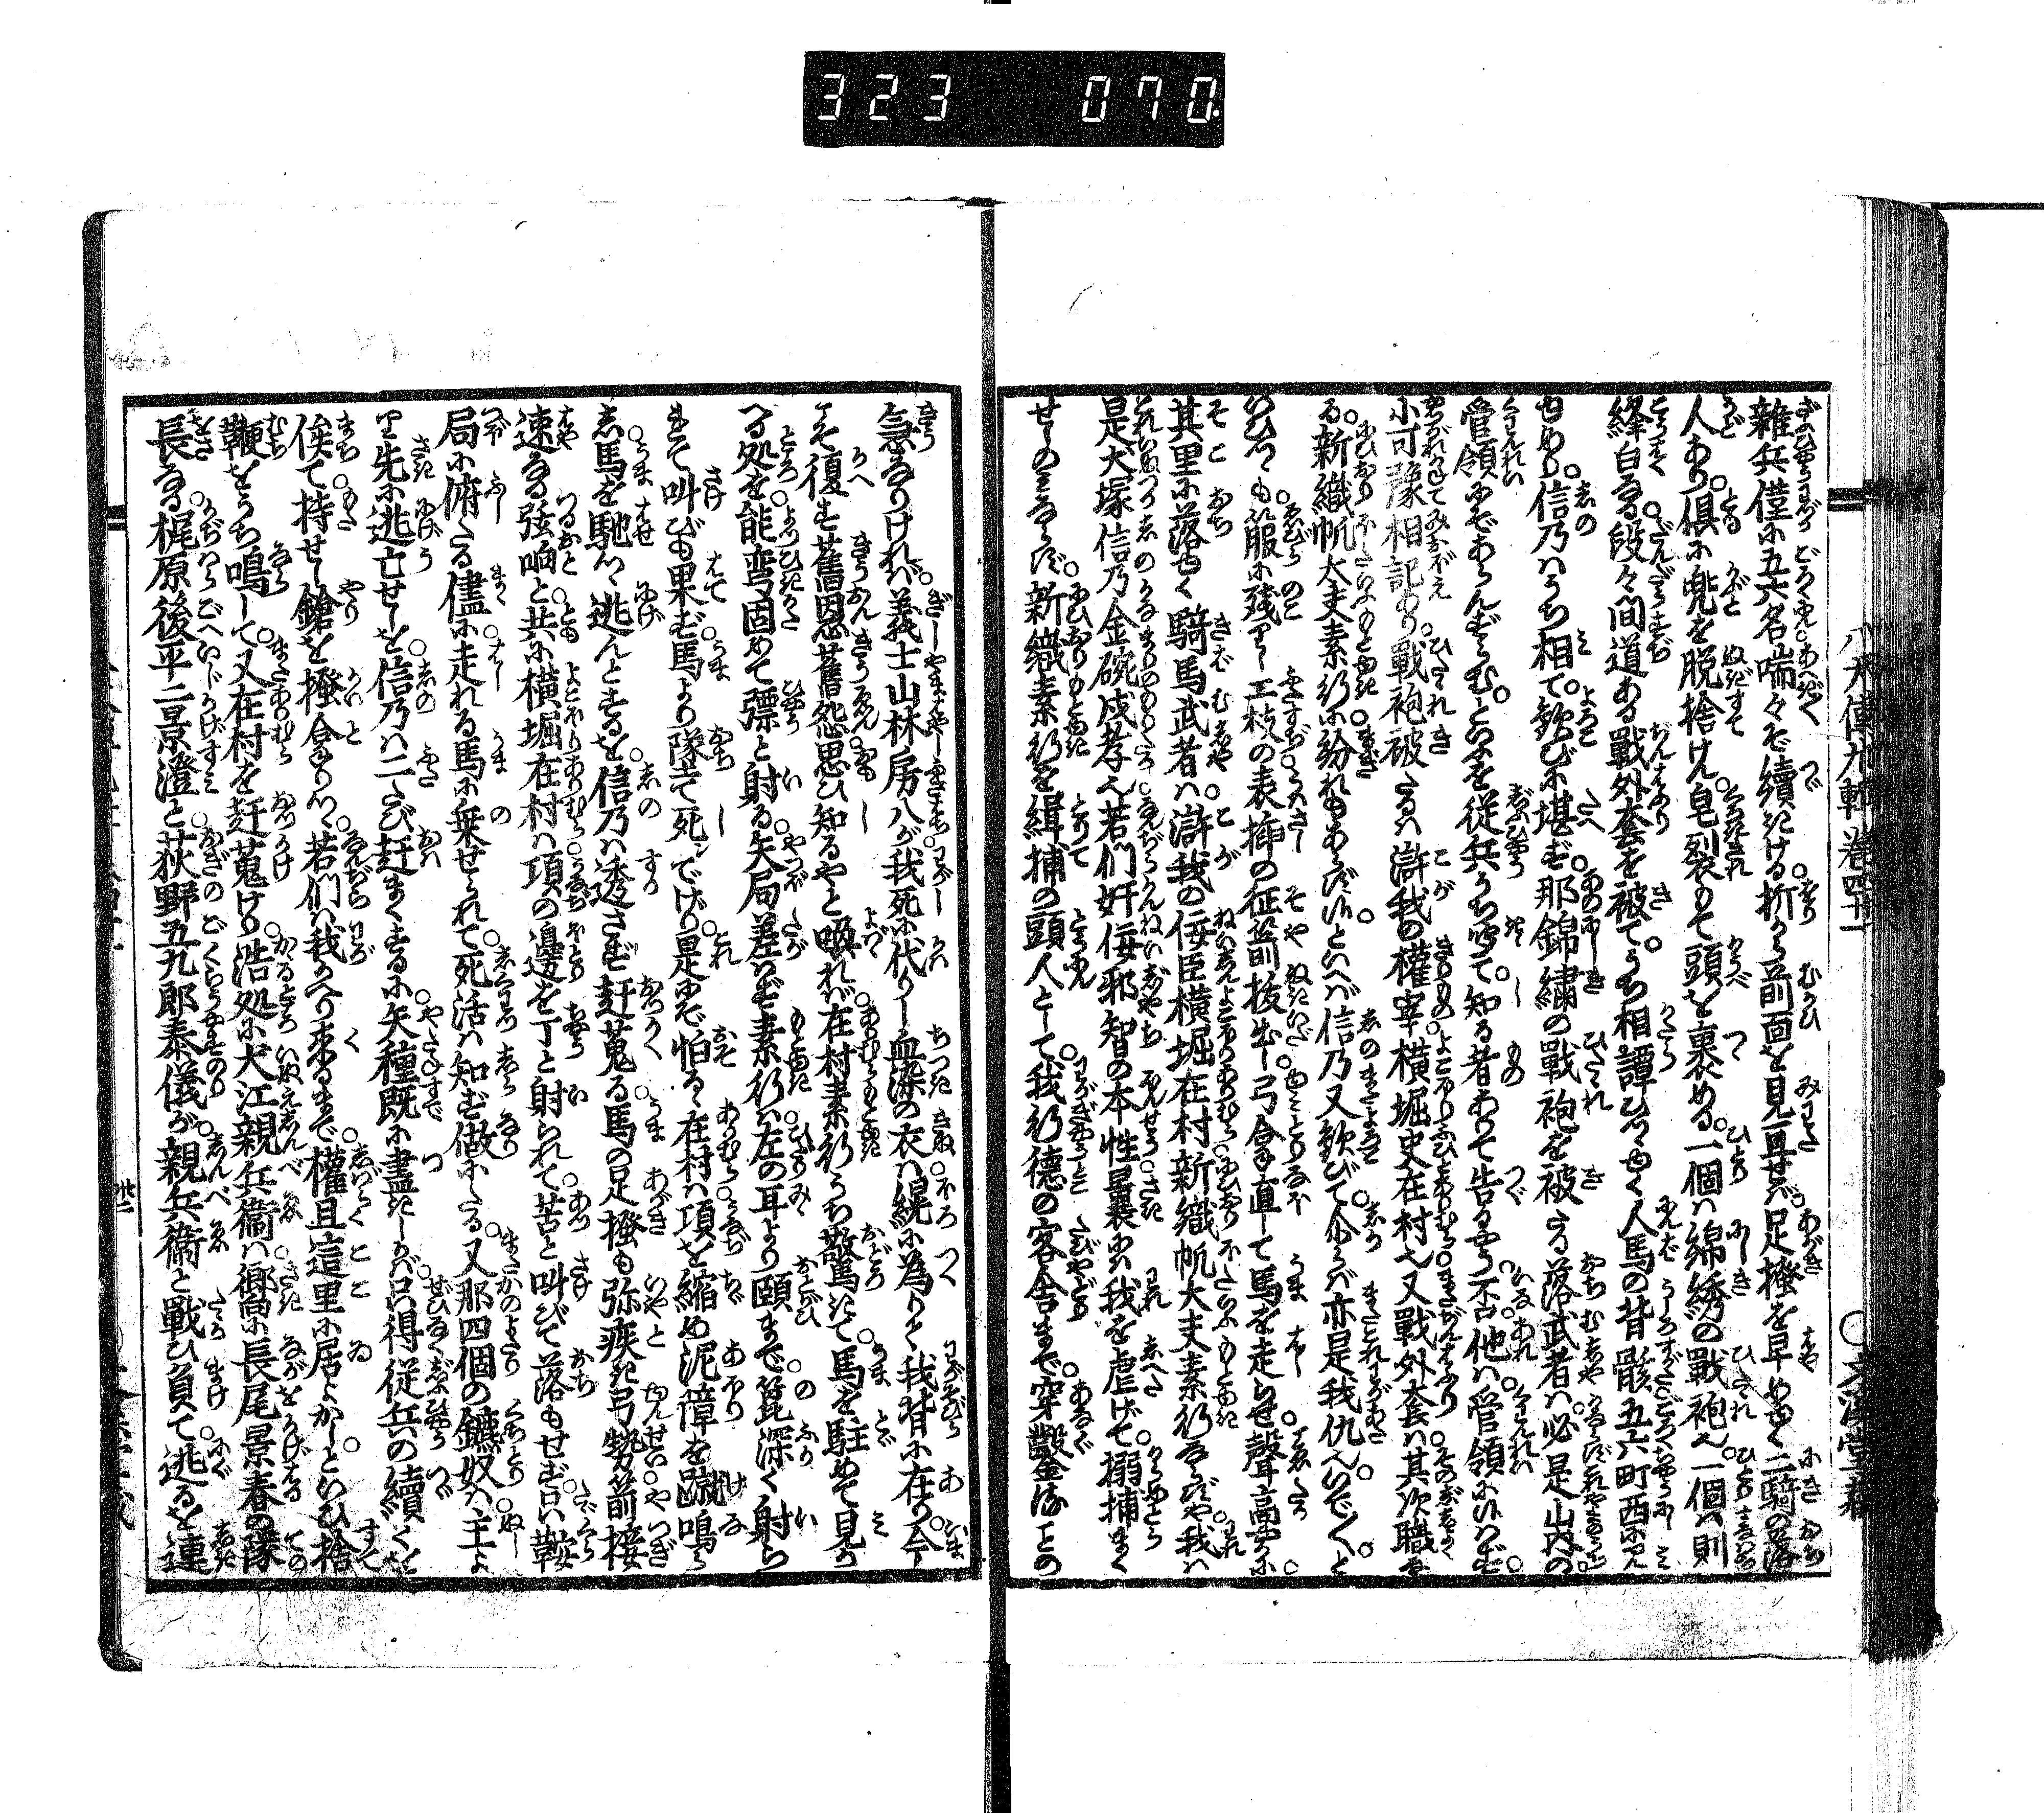 323 070
八犬傳九輯卷四十一
○文溪堂藏
雜兵僅に五六名喘々ぞ續きける折から前面を見亘せば足掻を早めゆく二騎の落
人あり倶に兜を脱捨けん皂裂もて頭を裹める一個は綿綉の戰袍也一個は則
絳白なる段々間道ある戰外套を被てうち相譚ひつゝゆく人馬の背駭五六町西に見
ゆめり信乃はうち相て歓びに堪ず那錦繍の戰袍を被たる落武者は必是山内の
管領にぞあらんずらむといふを從兵うち空て知る者ありて告るやう不也他は管領に候はず
小可豫相記あり戰袍被たるは滸我の權宰横堀史在村也又戰外套は其次職な
る新織帆大夫素行に紛れもあらず候といへば信乃又歓びて尒らば亦是我仇也いでくと
いひつゝも箙に残りし二枝の表揷の征箭拔出し弓拿直して馬を走らせ聲高やかに
其里に落ゆく騎馬武者は滸我の佞臣横堀在村新織帆大夫素行ならずや我は
是大塚信乃金碗戍孝也若們奸佞邪智の本性曩には我を虐げて搦捕まく
せしのみならず新織素行を緝捕の頭人として我行德の客舎まで穿鑿海ことの
急なりければ義士山林房八が我死に代りし血染の衣は綐に爲りて我背に在り今
こそ復す舊恩舊怨思ひ知るやと喚れば在村素行うち驚きて馬を駐めて見か
へる処を能彎固めて彍と射る矢局差はず素行は左の耳より頤まで箆深く射ら
れて叫びも果ず馬より墜て死してげり是にぞ怕るゝ在村は項を縮め泥障を蹴鳴ら
し馬を馳つゝ逃んとするを信乃は透さず赶蒐る馬の足掻も弥疾き弓勢箭接
速なる弦响と共に横堀在村は項の邊を丁と射られて苦と叫びて落もせず只鞍
局に俯たる儘に走れる馬に乗せられて死活は知ず做にたる又那四個の鑣奴は主よ
り先に逃亡せしを信乃は二たび赶まくするに矢種既に盡きしかば只得從兵の續くを
俟て持せし鎗を掻拿りつゝ若們は我かへり來るまで權且這里に居よかしといひ捨
鞭をうち鳴して又在村を赶蒐けり浩処に犬江親兵衛は嚮に長尾景春の隊
長なる梶原後平二景澄と荻野五九郎泰儀が親兵衛と戰ひ負て逃るを連
廿二